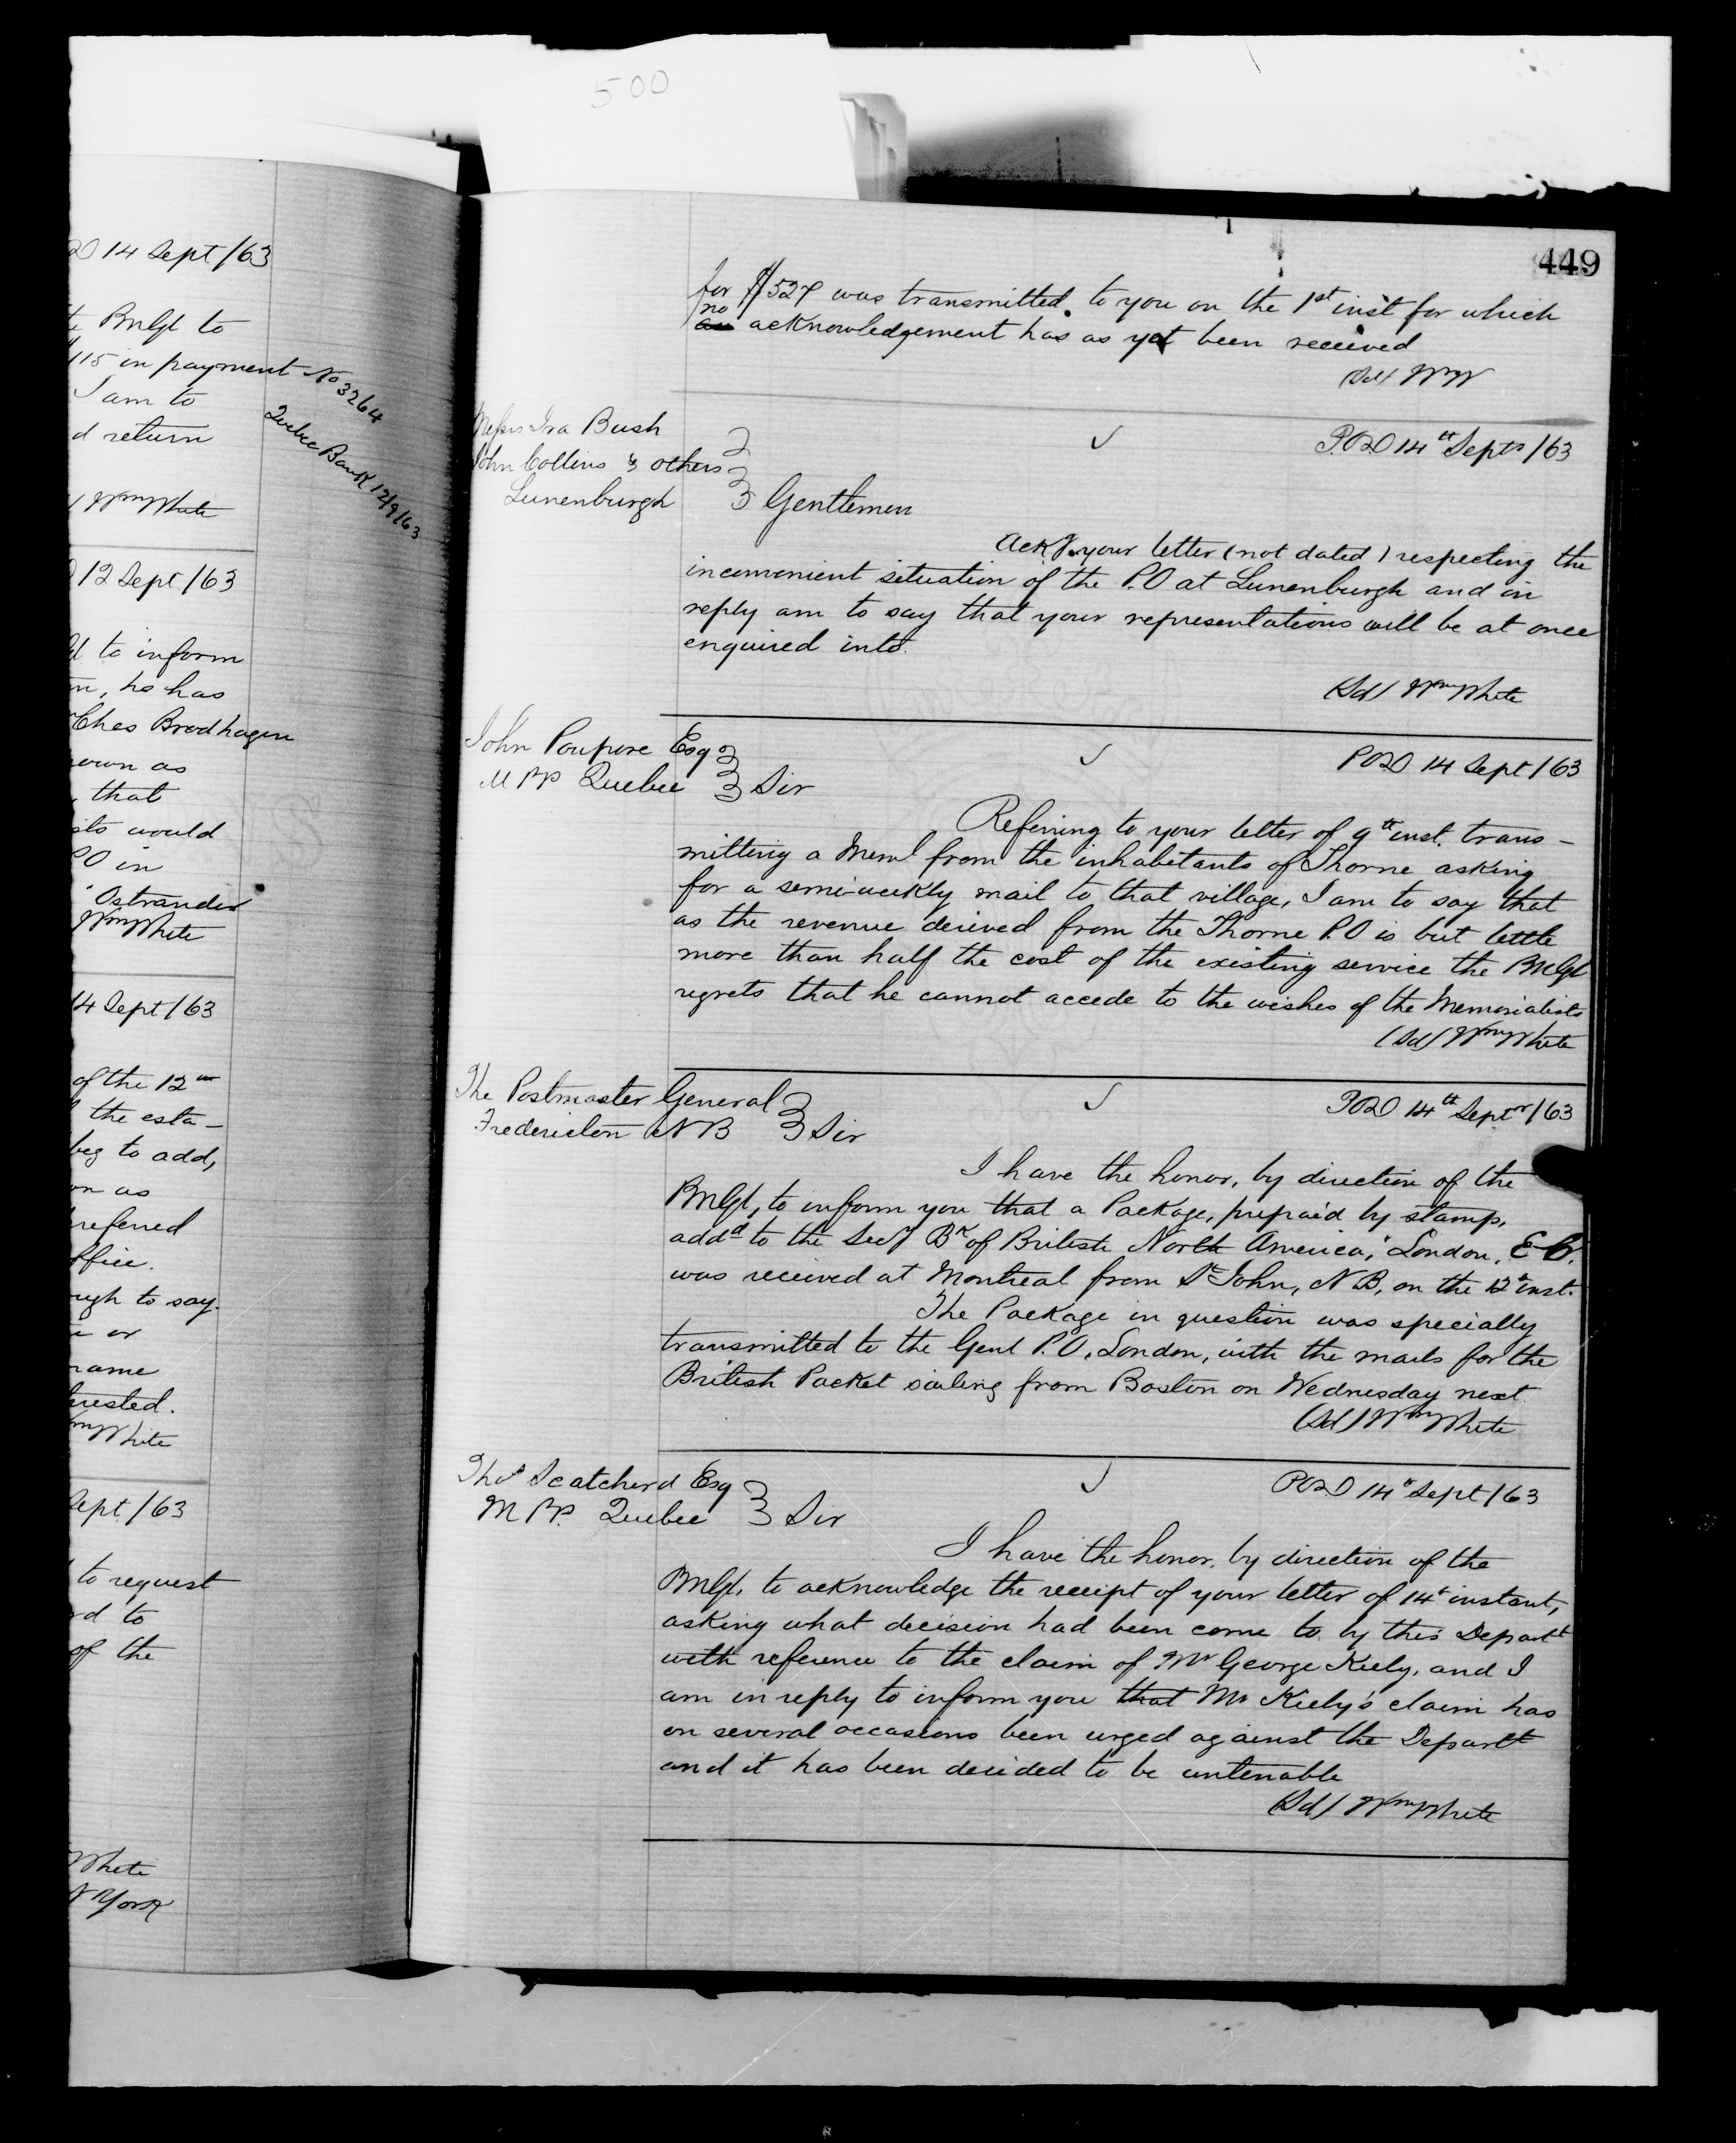 500
D 14 Sept/63
te PMGl to
115 in payment
I am to
d return
No 3264
Quebec Bank 12/9/63
/ Wm White
12 Sept/63
to inform
n, he has
Chas Brodhagen
own as
, that
sts would
PO in
"Ostrander"
Wm White
14 Sept/63
of the 12th
the esta-
beg to add,
on as
referred
ffice.
ugh to say.
or
name
erested.
Wm White
Sept/63
to request
rd to
of the
White
N York
449
for $527 was transmitted to you on the 1st inst for which
no
an acknowledgement has as yet been received
(Sd/ WmW
Messrs Ira Bush
John Collins & others
Lunenburgh
P.O.D 14th Septr/63
Gentlemen
Ackg. your letter (not dated) respecting the
inconvenient situation of the P.O at Lunenburgh and in
reply am to say that your representations will be at once
enquired into.
(Sd/ Wm White
John Poupore Esq
M PP Quebec
POD 14 Sept/63
Sir
Referring to your letter of 9th inst. trans-
mitting a Meml from the inhabitants of Thorne asking
for a semi-weekly mail to that village, I am to say that
as the revenue derived from the Thorne P.O is but little
more than half the cost of the existing service the PMGl
regrets that he cannot accede to the wishes of the Memorialists
(Sd/ Wm White
The Postmaster General
Fredericton N B
POD 14th Septr/63
Sir
I have the honor, by direction of the
PMGl, to inform you that a Package, prepaid by stamp,
addd to the Secy Bk of British North America, London, E C,
was received at Montreal from St John, N B, on the 12th inst.
The Package in question was specially
transmitted to the Genl P.O, London, with the mails for the
British Packet sailing from Boston on Wednesday next.
(Sd/ Wm White
Thos Scatcherd Esq
M PP. Quebec
POD 14th Sept/63
Sir
I have the honor, by direction of the
PMGl, to acknowledge the receipt of your letter of 14th instant,
asking what decision had been come to by this Departt
with reference to the claim of Mr George Kiely, and I
am in reply to inform you that Mr Kiely's claim has
on several occasions been urged against the Departt
and it has been decided to be untenable
(Sd/ Wm White